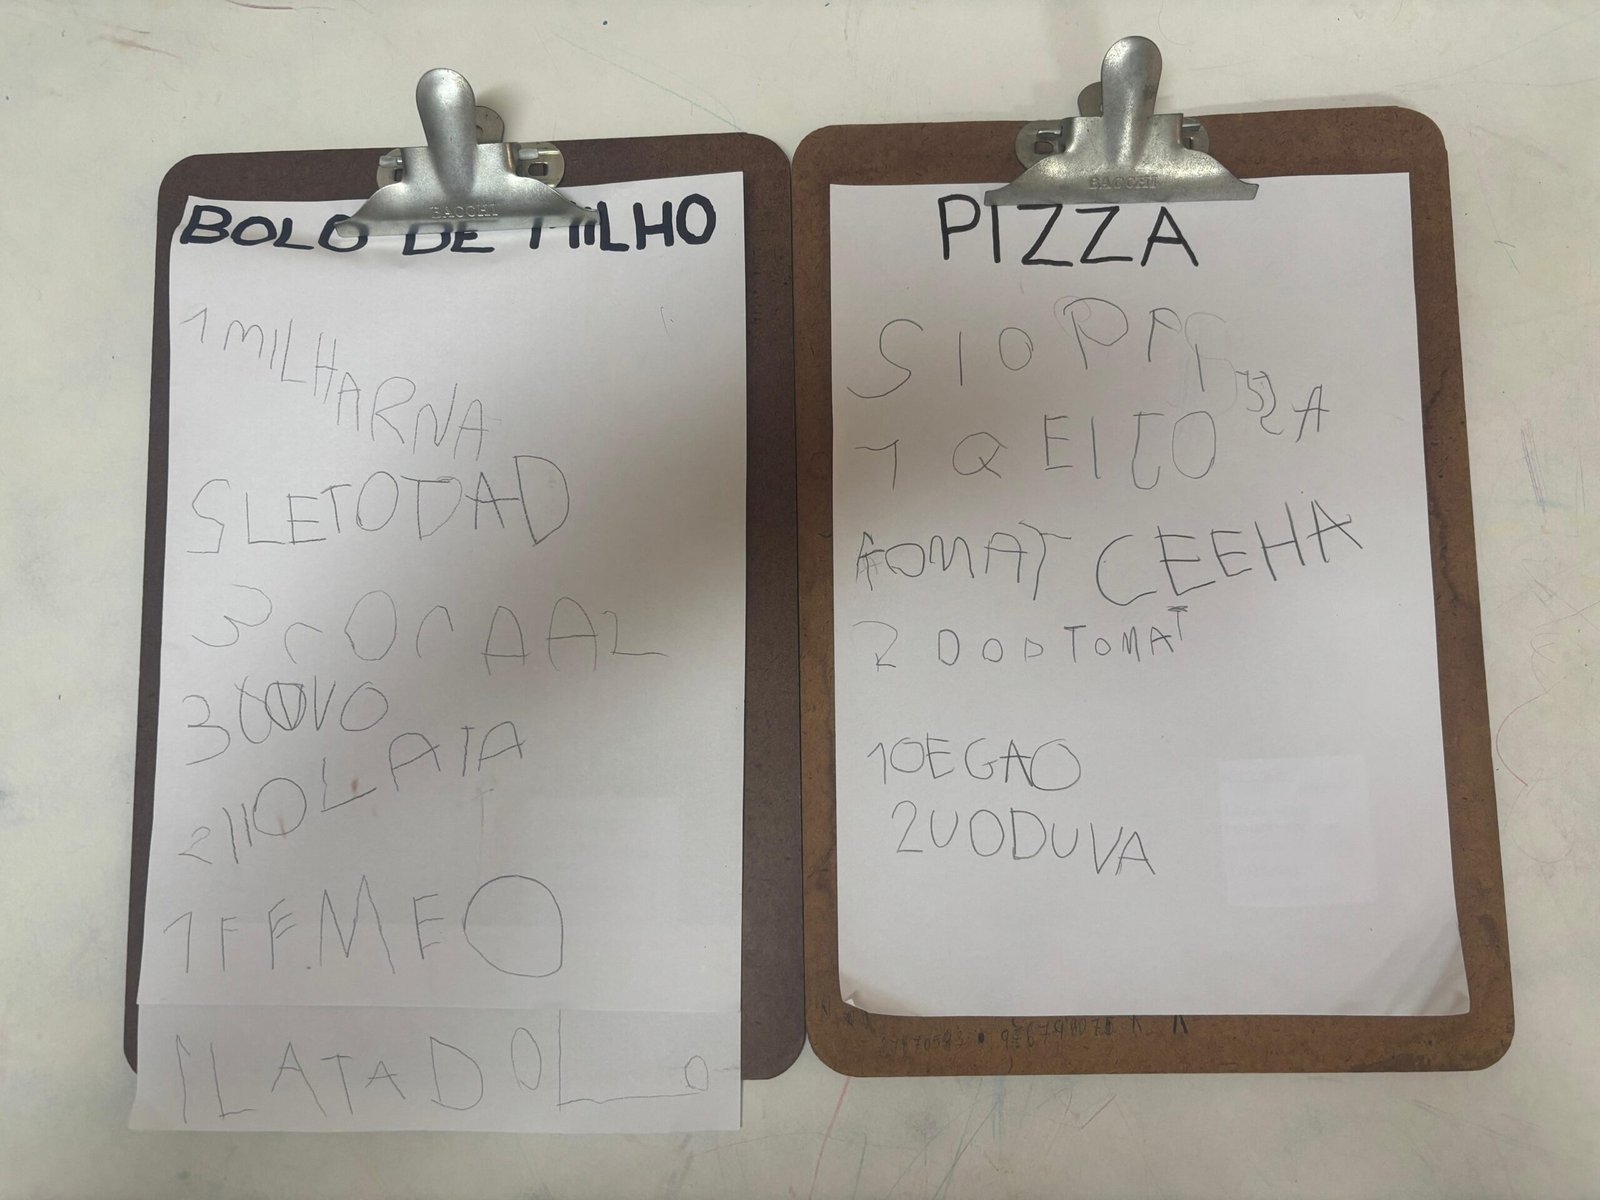 BACCHI
BOLO DE MILHO
1 MILHARNA
SLETODAD
3 COCAAL
3 OVO
2 11OLATA
1 FFMEO
1LATADOLO
BACCHI
PIZZA
SIOPA
1 QEIJO
TOMAT CEEHA
2 DOD TOMAT
10EGAO
2UODUVA